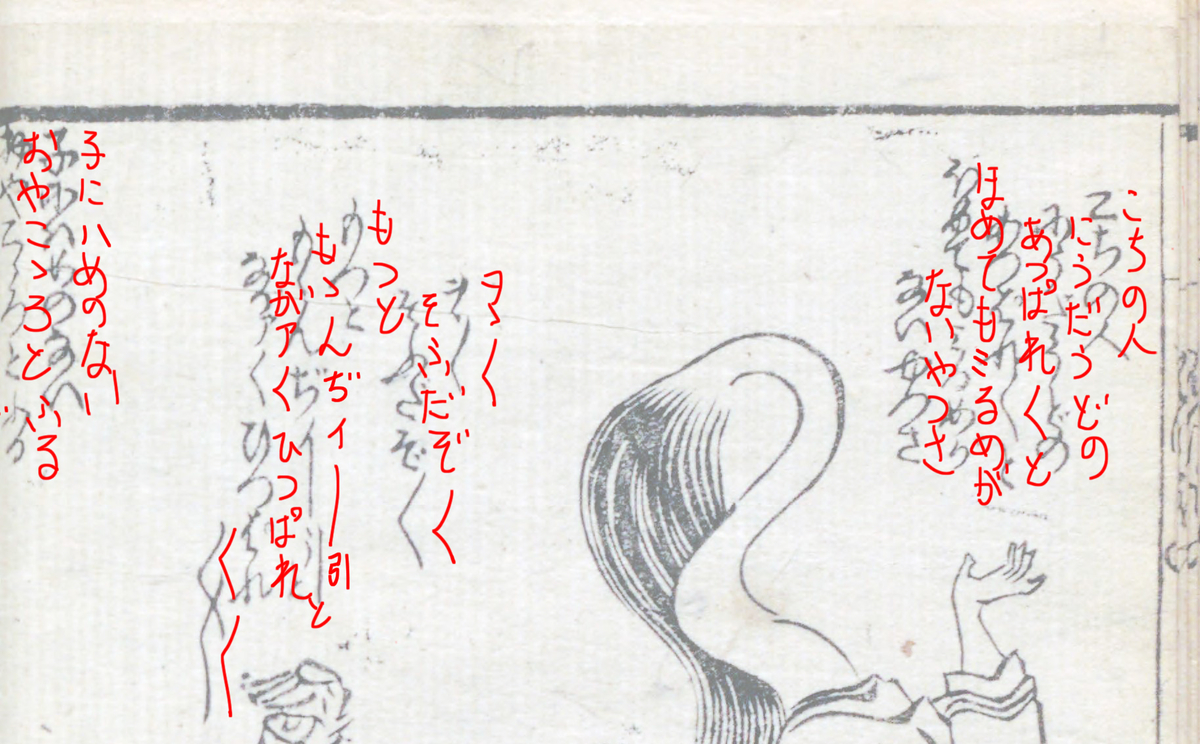 こちの人
にうだうどの
あつぱれ〱と
ほめてもミるめが
ないやつさ
ヲヽ〱
そふだぞ〱
もつと
もゝんぢィー引と
ながァくひつぱれ
〱〱
子にハめのない
おやこゝろとふる